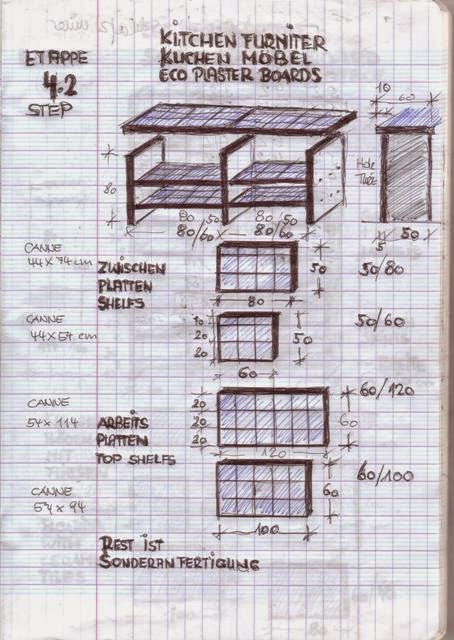 ETAPPE
4.2
STEP
KITCHEN FURNITER
KUCHEN MÖBEL
ECO PLASTER BOARDS
10
60
80
Holz
80 /50 80/50
80/60 80/60
5 50
CANNE
44 x 74 cm
ZWISCHEN
PLATTEN
SHELFS
50
80
50/80
CANNE
44 x 54 cm
10
20
20
50
60
50/60
CANNE
54 x 114
ARBEITS
PLATTEN
TOP SHELFS
20
20
20
60
120
60/120
CANNE
54 x 94
60
100
60/100
REST IST
SONDERANFERTIGUNG